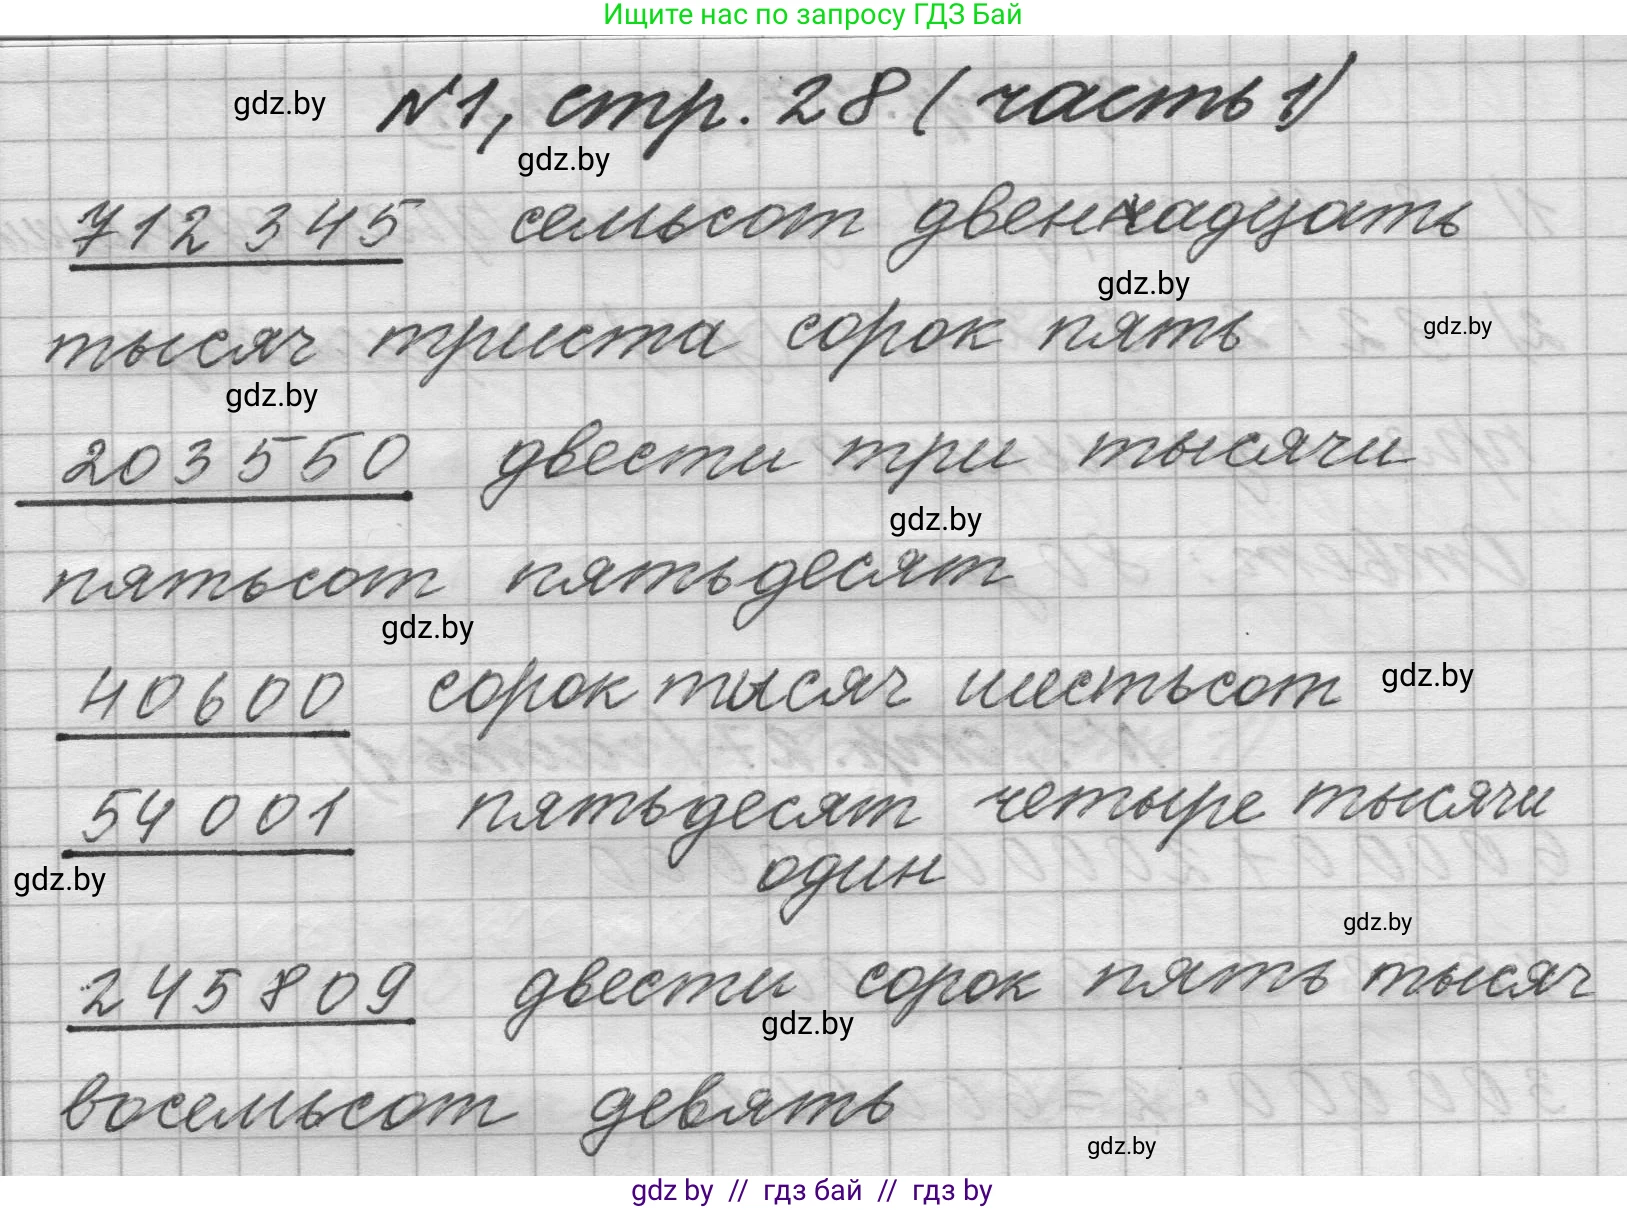 Ищите нас по запросу ГДЗ Бай
gdz.by №1, стр. 28 (часть 1)
gdz.by
712 345 семьсот двеннадцать
gdz.by
тысяч триста сорок пять gdz.by
gdz.by
203550 двести три тысячи
gdz.by
пятьсот пятьдесят
gdz.by
40600 сорок тысяч шестьсот gdz.by
54 001 пятьдесят четыре тысячи
один
gdz.by
gdz.by
245809 двести сорок пять тысяч
gdz.by
восемьсот девять
gdz.by
gdz by // гдз бай // гдз by